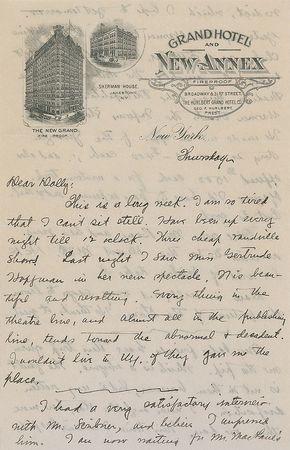 GRAND HOTEL
AND
NEW ANNEX
FIREPROOF
BROADWAY & 31ST STREET
THE HURLBERT GRAND HOTEL CO.
GEO. F. HURLBERT,
PREST.
SHERMAN HOUSE,
JAMESTOWN,
N.Y.
THE NEW GRAND
FIRE PROOF.
New York.
Thursday
Dear Dolly:
This is a long week. I am so tired
that I can't sit still. Have been up every
night till 12 o'clock. Three cheap vaudeville
shows. Last night I saw Miss Gertrude
Hoffman in her new spectacle. It is beau-
tiful and revolting. Every thing in the
theatre line, and almost all in the publishing
line, tends toward the abnormal & decadent.
I wouldn't live in N.Y. if they gave me the
place.
I had a very satisfactory interview
with Mr. Scribner, and believe I impressed
him. I am now waiting for Mr.